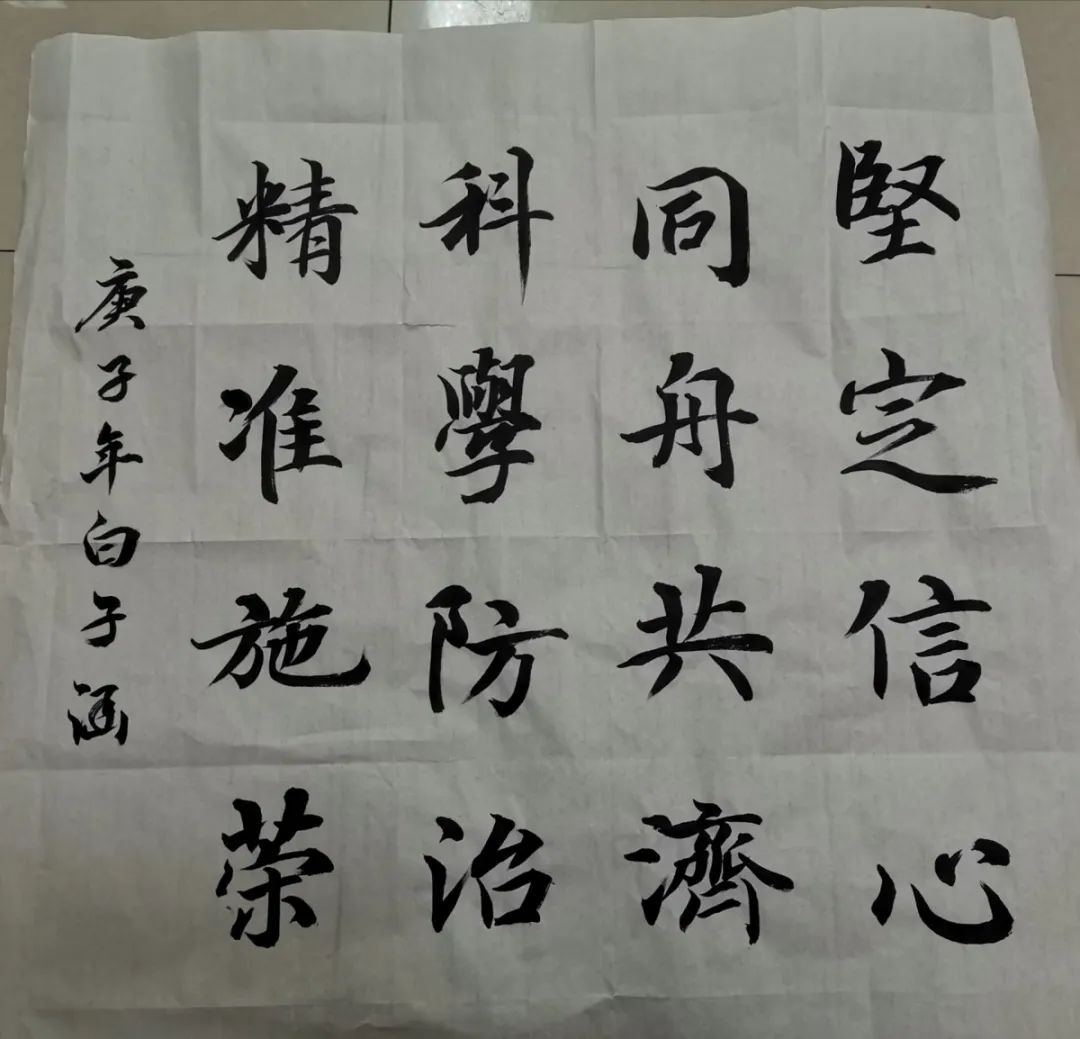 堅定信心
同舟共濟
科學防治
精准施荣
庚子年白子涵